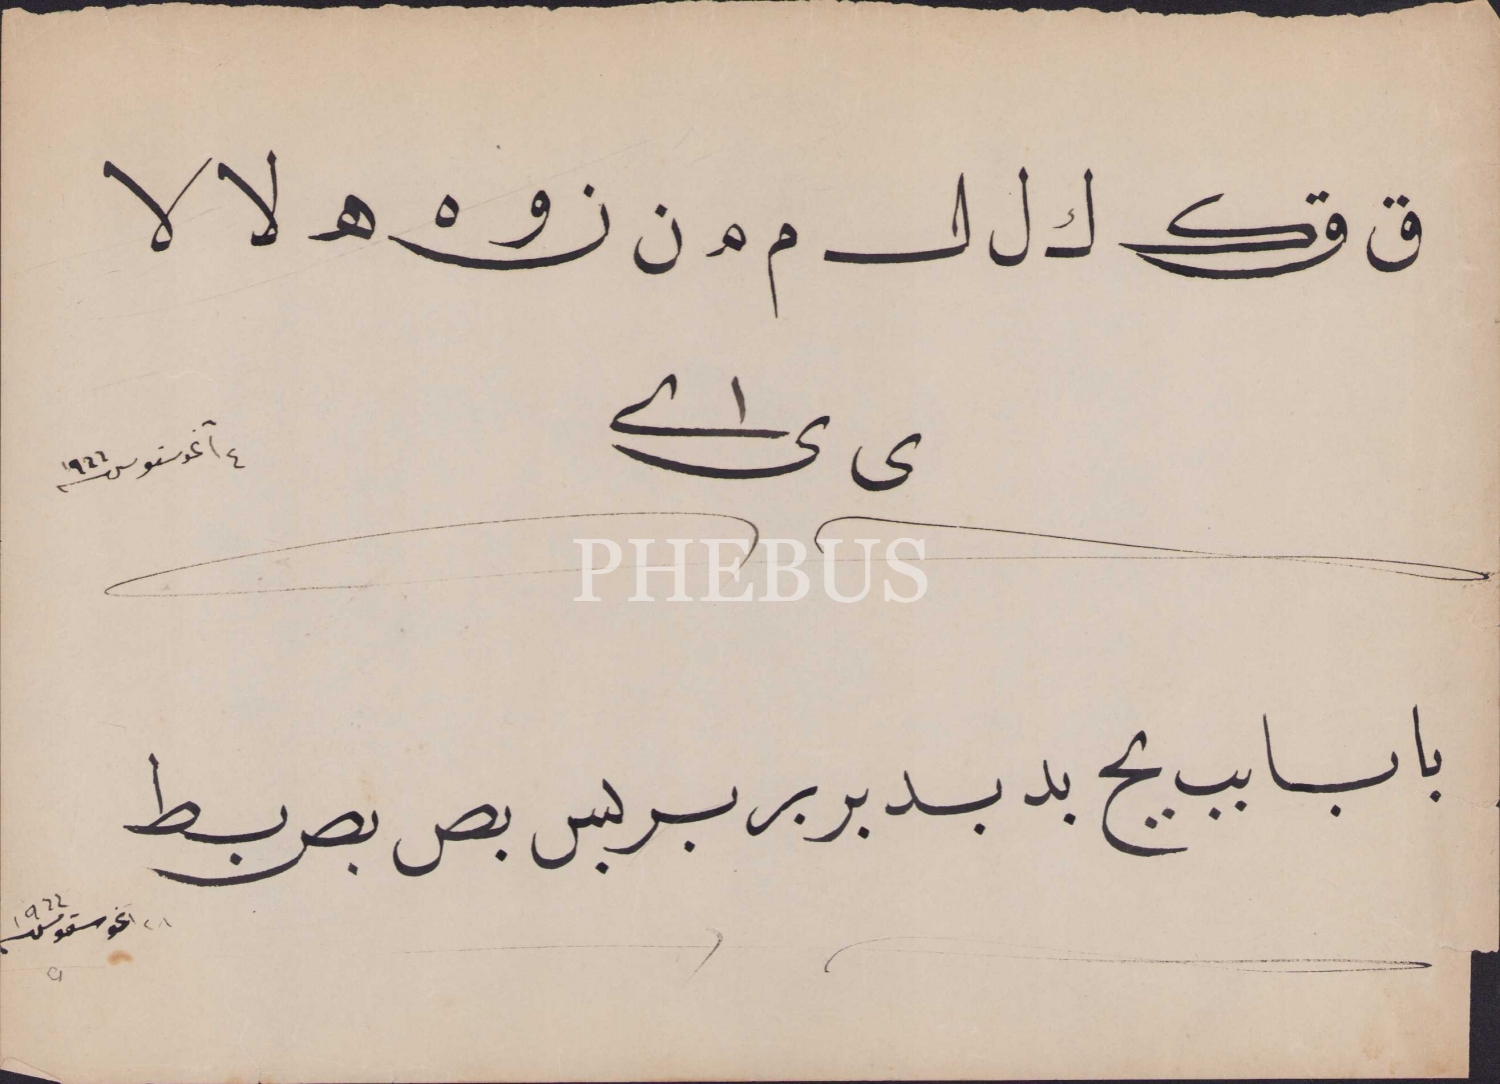 ق ق ك ك ل ل ا م م ن ن و ه ه لا لا
ى ى ا ے
٤ آغوستوس ١٩٢٢
PHEBUS
با با بب بح بد بد بر بر بر بس بص بص بط
٢٨ آغوستوس ١٩٢٢